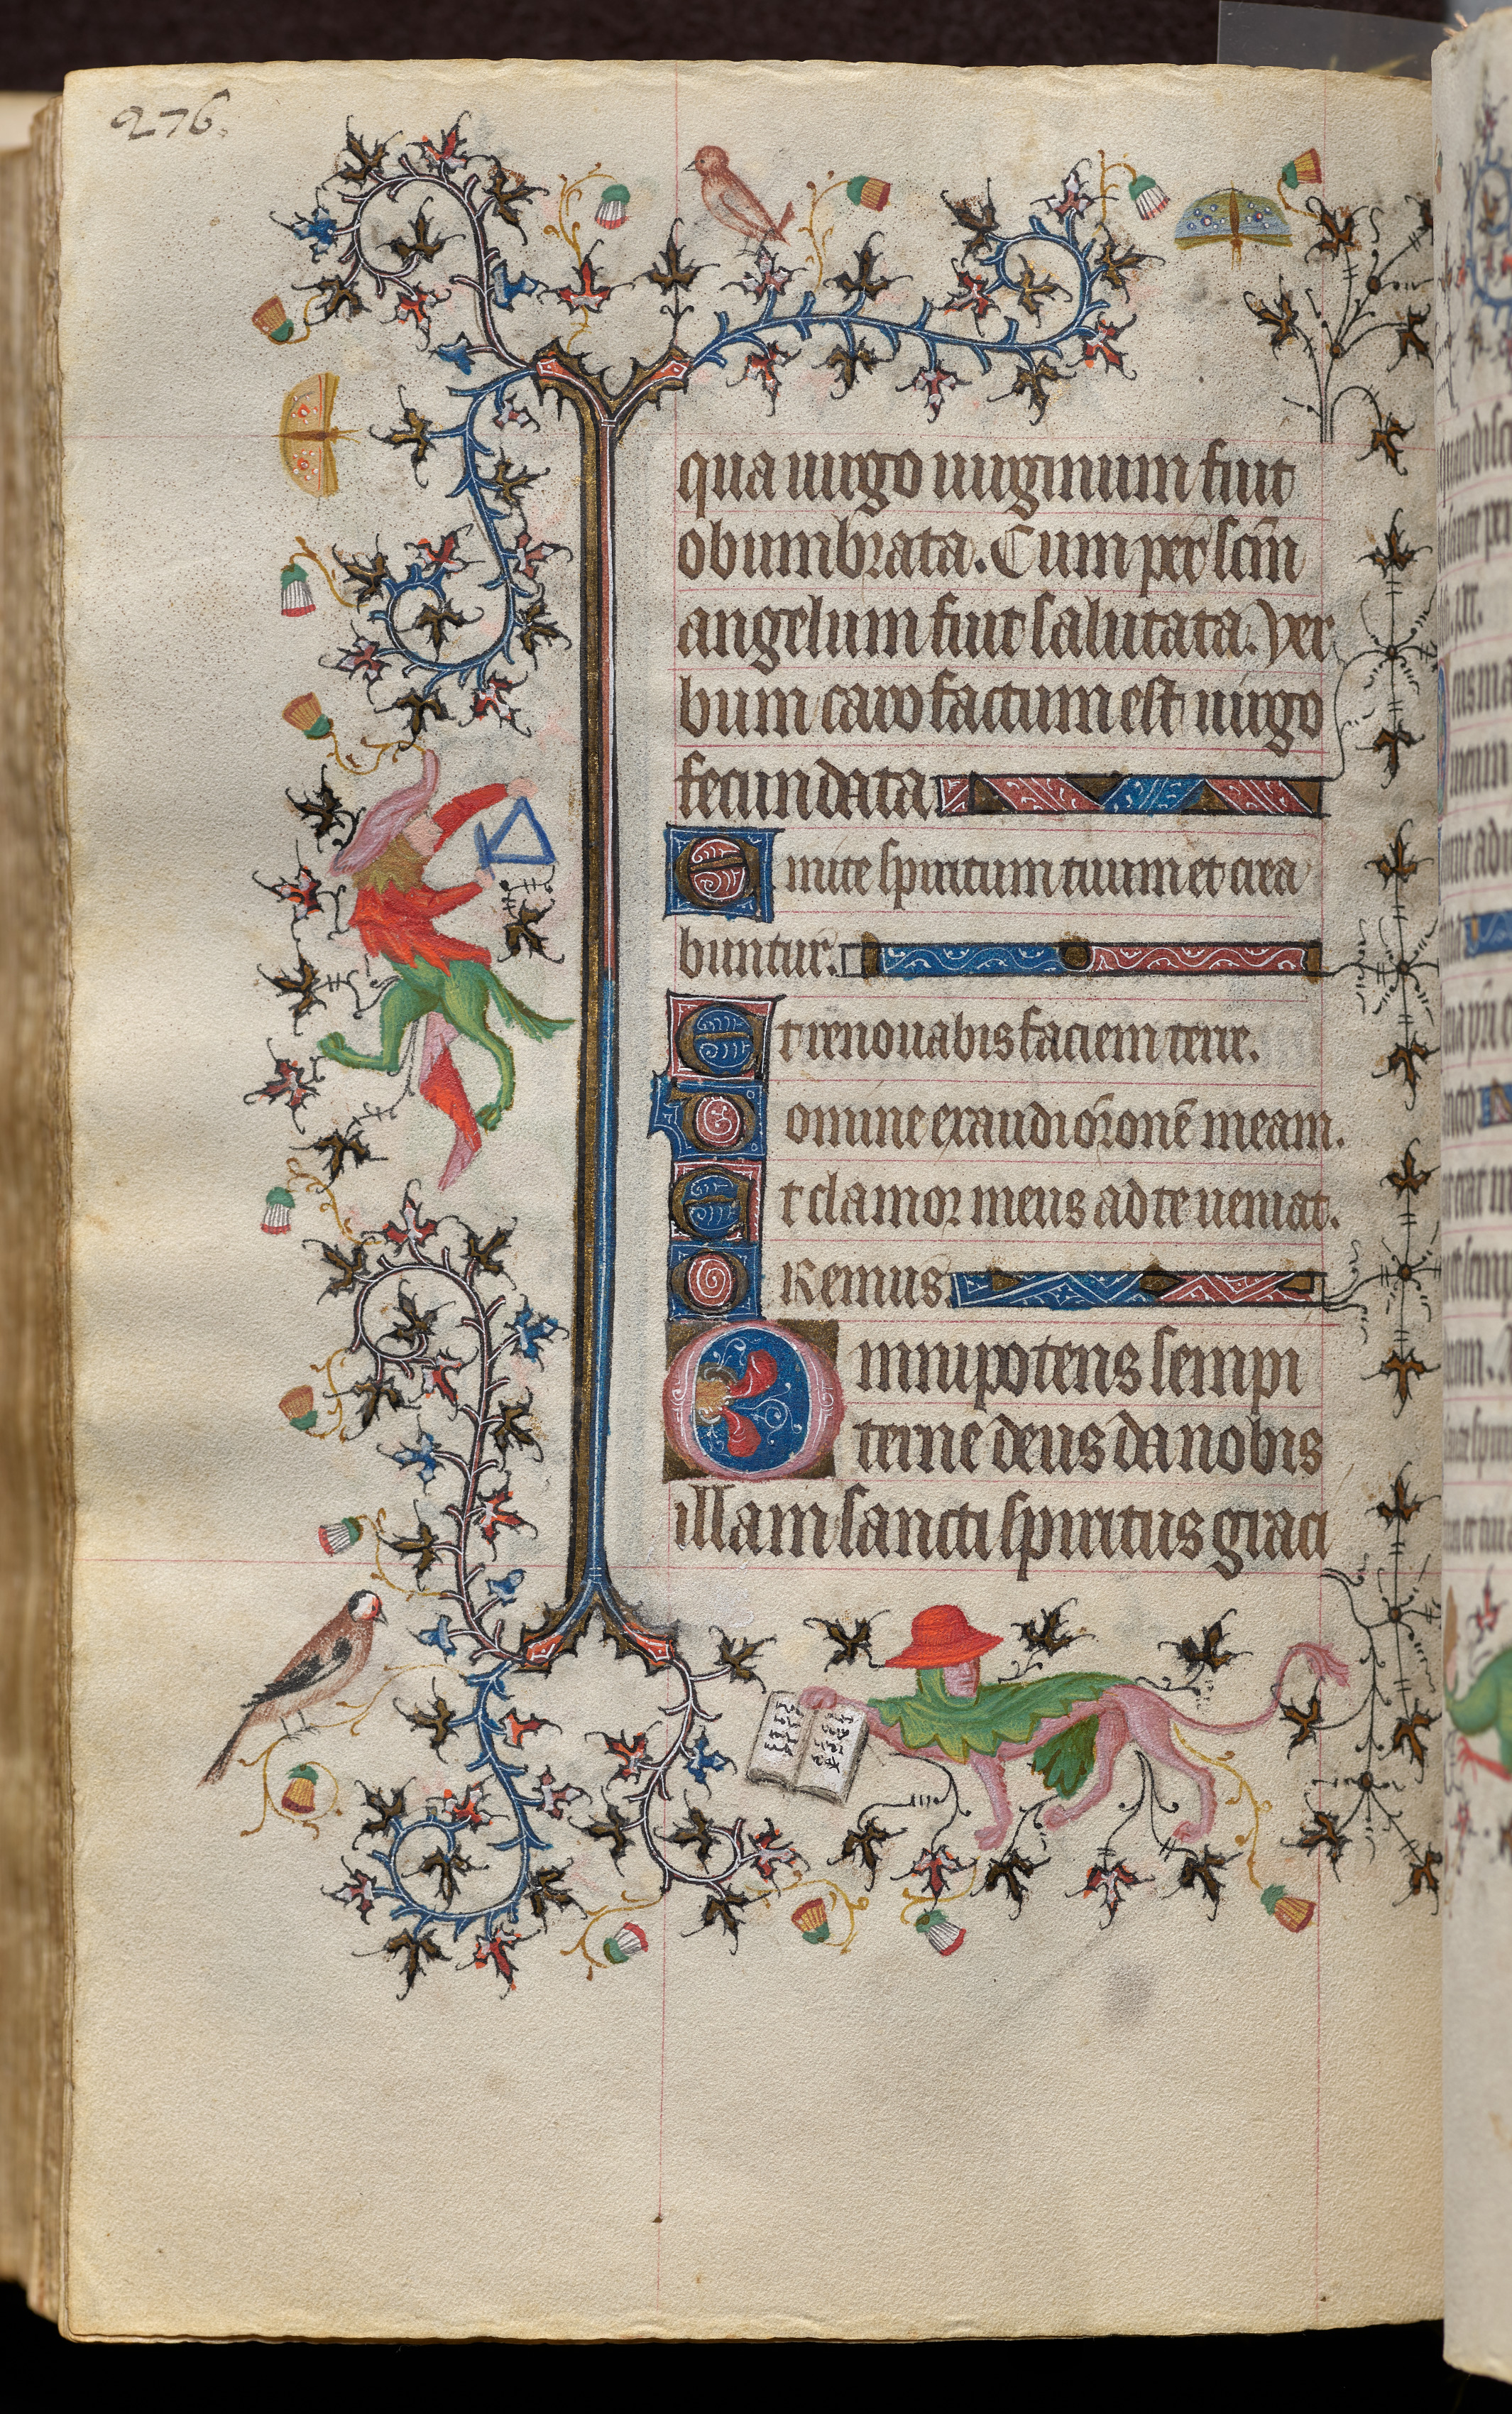 276.
qua uirgo uirginum fuit
obumbrata. Cum per scm̄
angelum fuit salutata. Ver
bum caro factum est uirgo
fecundata.
Emitte spiritum tuum et crea
buntur.
Et renouabis faciem terre.
Domine exaudi or̄onē meam.
Et clamor meus ad te ueniat.
ORemus.
Omnipotens sempi
terne deus da nobis
illam sancti spiritus graci